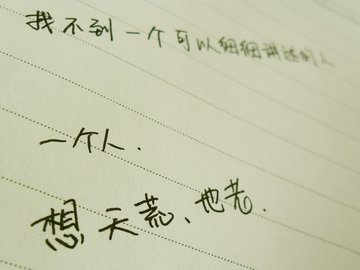 我不到一个可以细细讲述的人
一个人.
想天荒、地老.